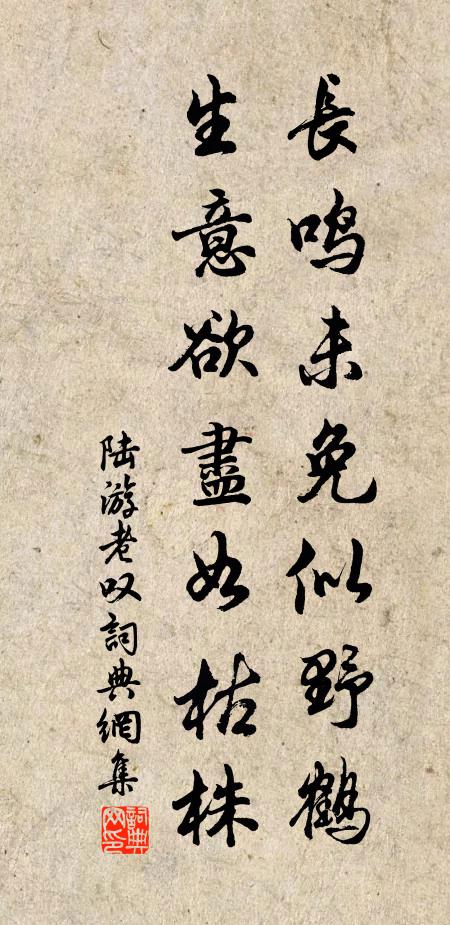 長鳴未免似野鶴
生意欲盡如枯株
陆游老叹詞典網集
詞典網印